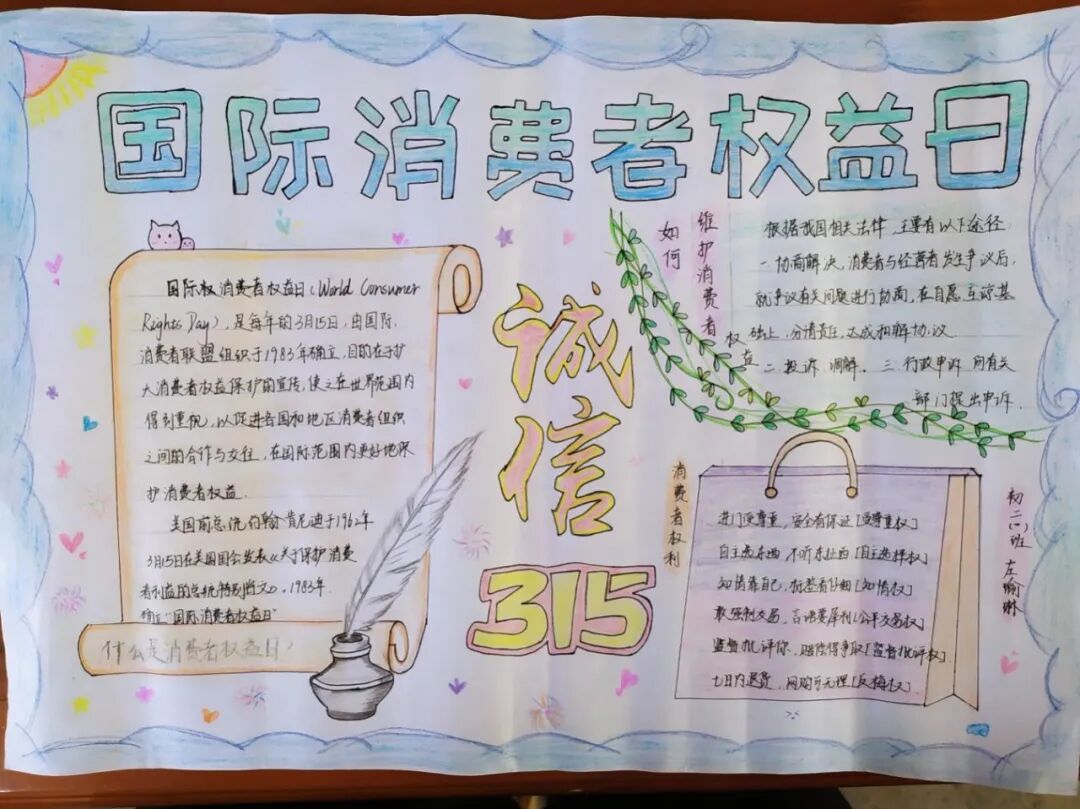 国际消费者权益日
国际权消费者权益日（World Consumer
Rights Day），是每年的3月15日，由国际
消费者联盟组织于1983年确立，目的在于扩
大消费者权益保护的宣传，使之在世界范围内
得到重视，以促进各国和地区消费者组织
之间的合作与交往，在国际范围内更好地保
护消费者权益．
美国前总统约翰·肯尼迪于1962年
3月15日在美国国会发表《关于保护消费
者利益的总统特别咨文》，1983年
确立"国际消费者权益日"
什么是消费者权益日？
诚信
315
如何
维护消费者
权益
根据我国相关法律，主要有以下途径：
一．协商解决，消费者与经营者发生争议后，
就争议有关问题进行协商，在自愿、互谅基
础上，分清责任，达成和解协议．
二．投诉 调解． 三．行政申诉 向有关
部门提出申诉．
消费者权利
进门受尊重，安全有保证［受尊重权］
自主选东西，不听东扯西［自主选择权］
知情靠自己，标签看仔细［知情权］
敢强制交易，言语要犀利［公平交易权］
监督批评你，赔偿得争取［监督批评权］
七日内退货，网购可无理［反悔权］
初二（1）班
左喻琳